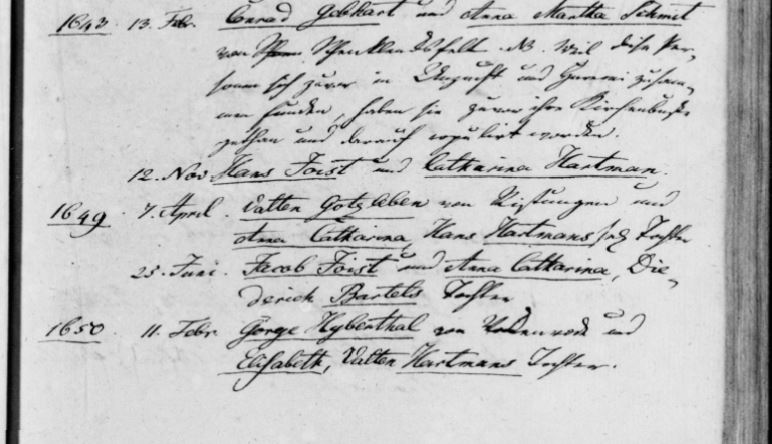 1643 13. Febr. Conrad Gebhart und Anna Martha Schmit
von Schencklendsfeldt NB. weil diese Per-
sonen sich zuvor in Unzucht und Hurerei zusam-
men funden, haben sie zuvor ihre Kirchenbuße
gethan und darauf copulirt worden.
12. Nov Hans Foist und Catharina Hartman.
1649 7. April. Valten Gotzleben von und
Anna Catharina, Hans Hartmans sel. Tochter
25. Juni. Jacob Foist und Anna Catharina, Die-
derich Bartels Tochter
1650 11. Febr. Görge Hyberthal von und
Elisabeth, Valten Hartmans Tochter.